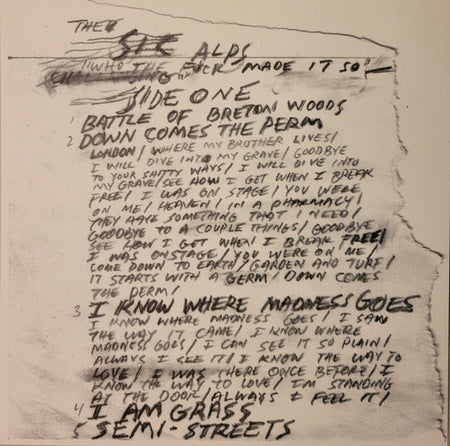 THE
SIC ALPS
"WHO THE FUCK MADE IT SO"
SIDE ONE
1 BATTLE OF BRETON WOODS
2 DOWN COMES THE PERM
LONDON / WHERE MY BROTHER LIVES /
I WILL DIVE INTO MY GRAVE / GOODBYE
TO YOUR SHITTY WAYS / I WILL DIVE INTO
MY GRAVE / SEE HOW I GET WHEN I BREAK
FREE / I WAS ON STAGE / YOU WERE
ON ME / HEAVEN / IN A PHARMACY /
THEY HAVE SOMETHING THAT I NEED /
GOODBYE TO A COUPLE THINGS / GOODBYE
SEE HOW I GET WHEN I BREAK FREE /
I WAS ONSTAGE / YOU WERE ON ME /
COME DOWN TO EARTH / GARDEN AND TURF /
IT STARTS WITH A GERM / DOWN COMES
THE PERM /
3 I KNOW WHERE MADNESS GOES
I KNOW WHERE MADNESS GOES / I SAW
THE WAY IT CAME / I KNOW WHERE
MADNESS GOES / I CAN SEE IT SO PLAIN /
ALWAYS I SEE IT / I KNOW THE WAY TO
LOVE / I WAS THERE ONCE BEFORE / I
KNOW THE WAY TO LOVE / I'M STANDING
AT THE DOOR / ALWAYS I FEEL IT /
4 I AM GRASS
5 SEMI-STREETS